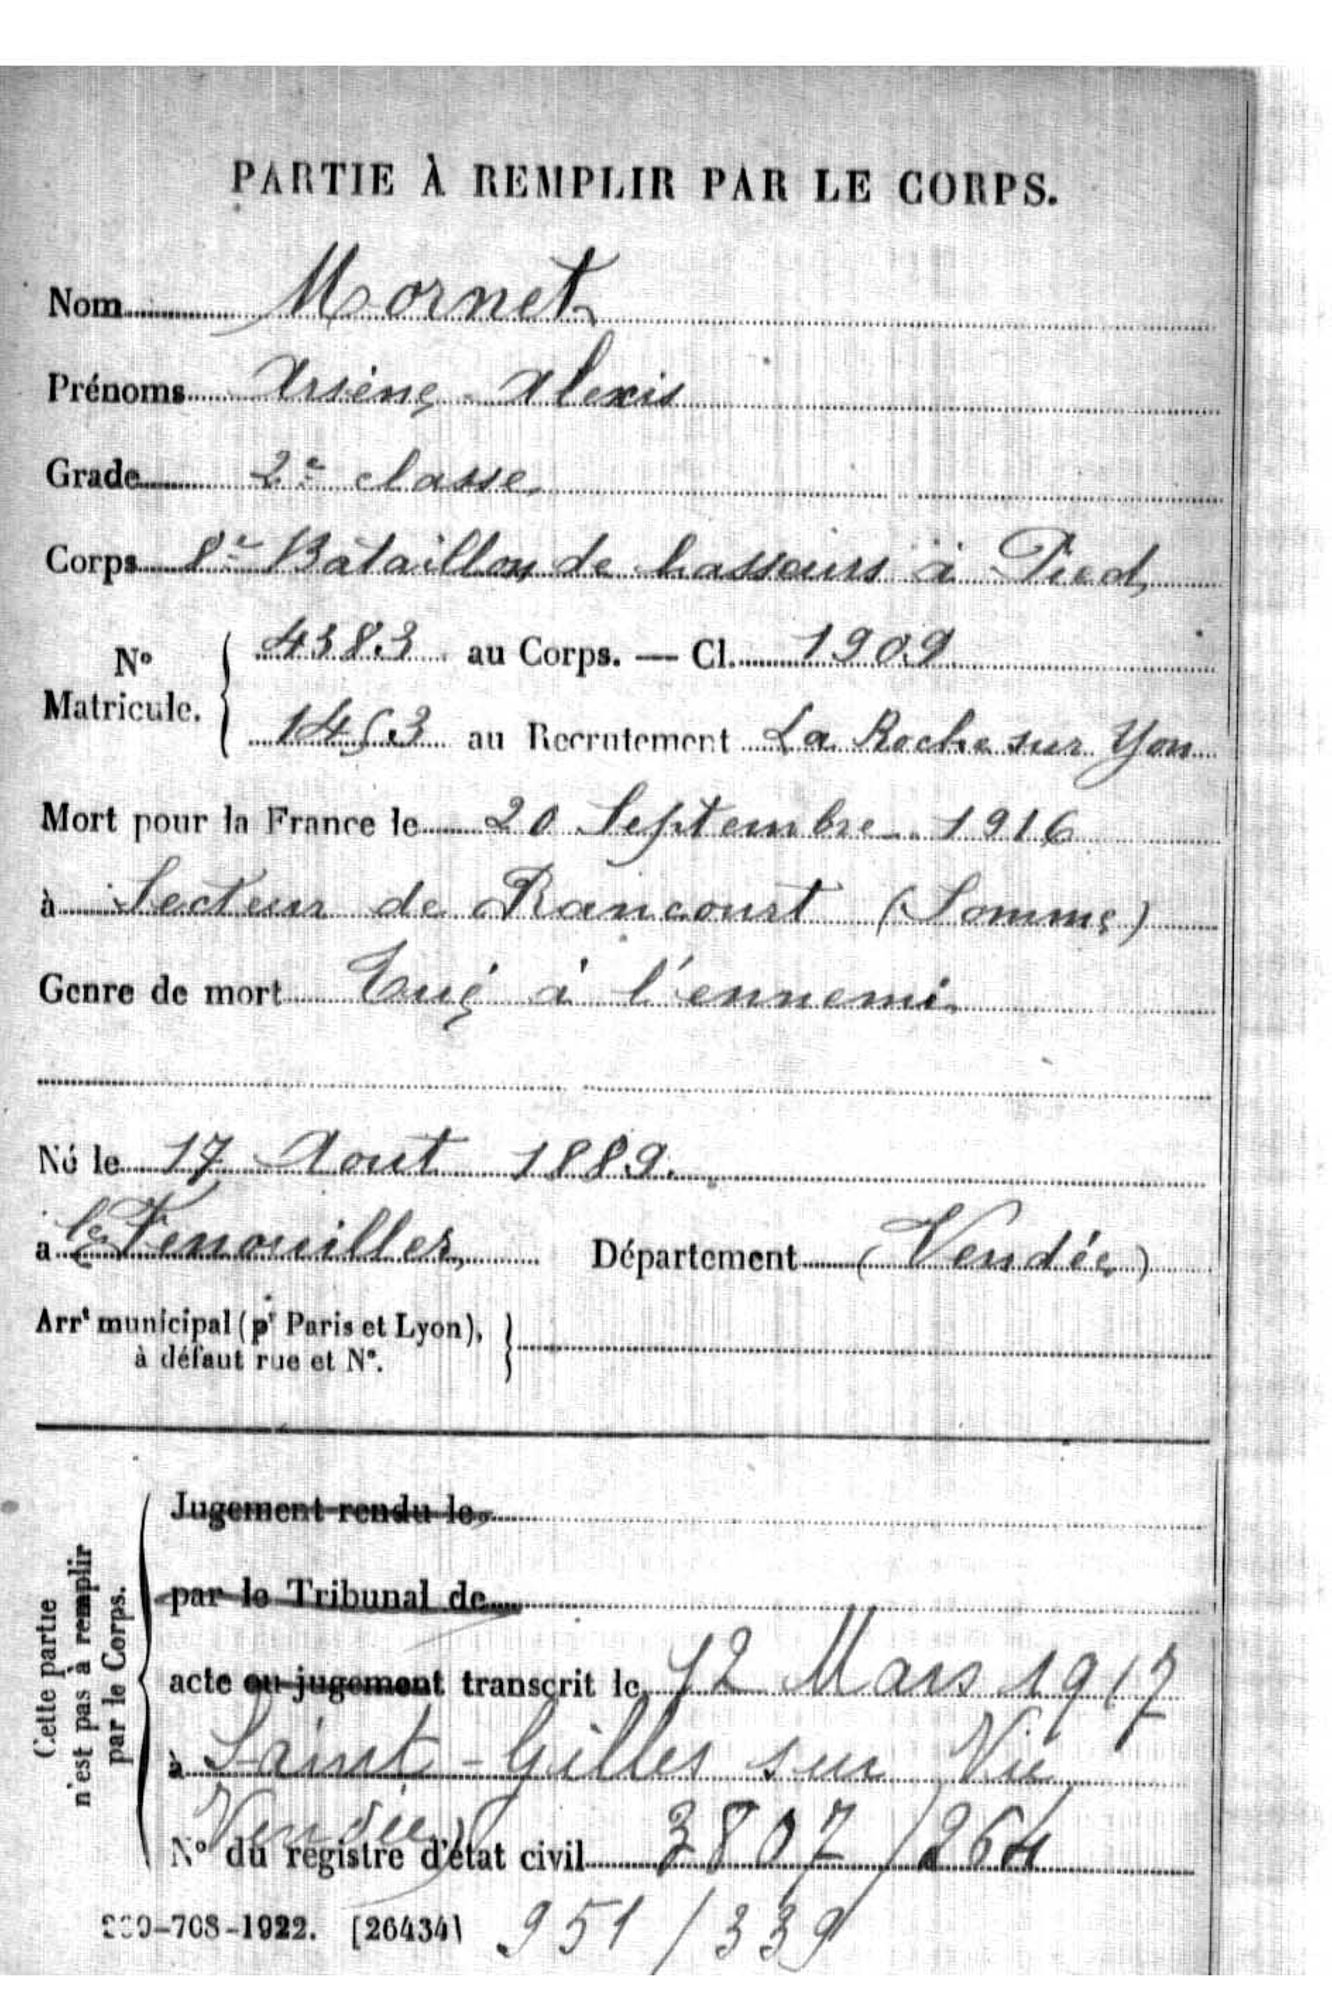 PARTIE À REMPLIR PAR LE CORPS.
Nom Mornet
Prénoms Arsène - Alexis
Grade 2e classe
Corps 8e Bataillon de hasseurs à Pied
4383 au Corps. — Cl. 1909
N° Matricule.
1453 au Recrutement La Roche sur Yon
Mort pour la France le 20 Septembre 1916
à Secteur de Rancourt (Somme)
Genre de mort Tué à l'ennemi
Né le 17 Aout 1889.
a le Fenouiller Département (Vendée)
Arrt municipal (pr Paris et Lyon),
à défaut rue et N°.
Cette partie
n'est pas à remplir
par le Corps.
Jugement rendu le
par le Tribunal de
acte ou jugement transcrit le 12 Mars 1917
à Saint-Gilles sur Vie
Vendée)
N° du registre d'état civil 3807/264
-708-1922. [26434] 951/339